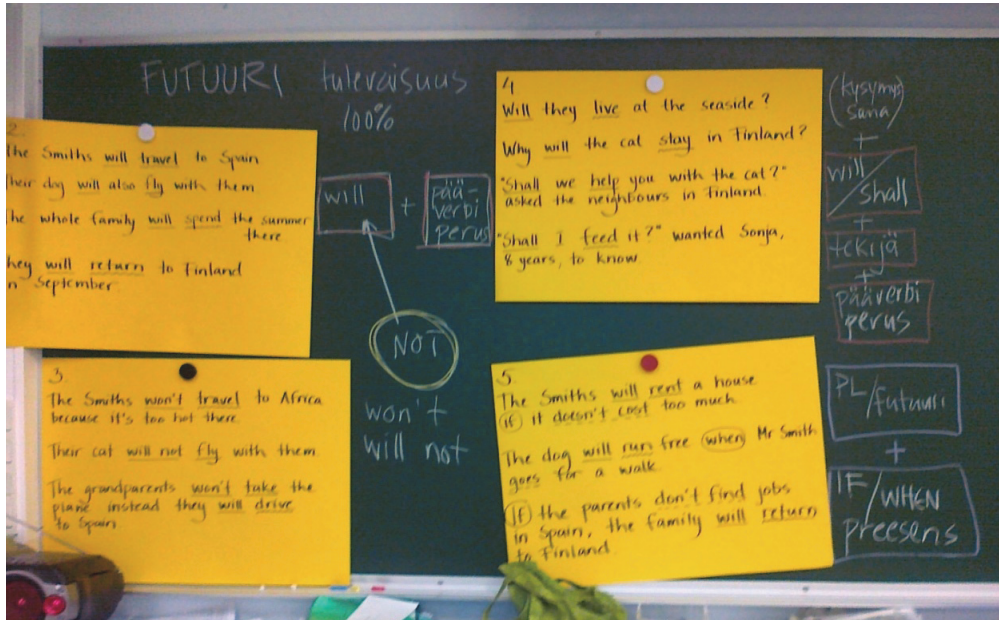 FUTUURI tulevaisuus
100%
2.
The Smiths will travel to Spain
Their dog will also fly with them
The whole family will spend the summer
there
They will return to Finland
in September
will + pää-
verbi
perus
NOT
won't
will not
3.
The Smiths won't travel to Africa
because it's too hot there.
Their cat will not fly with them.
The grandparents won't take the
plane instead they will drive
to Spain.
4
Will they live at the seaside?
Why will the cat stay in Finland?
"Shall we help you with the cat?"
asked the neighbours in Finland.
"Shall I feed it?" wanted Sonja,
8 years, to know
(kysymys
sana)
+
will/
shall
+
tekijä
+
pääverbi
perus
5.
The Smiths will rent a house
if it doesn't cost too much.
The dog will run free when Mr Smith
goes for a walk.
If the parents don't find jobs
in Spain, the family will return
to Finland.
PL/futuuri
+
IF/WHEN
preesens